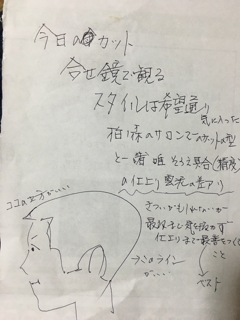 今日のカット
合せ鏡で観る
スタイルは希望通り
気に入った
のサロンでのカットの型
と一緒 唯 そろえ具合(精度)
の仕上り 差アリ
ココの
がいい
最後まで気を抜かず
仕上りまで最善をつくす
こと
ベスト
のライン
がいい